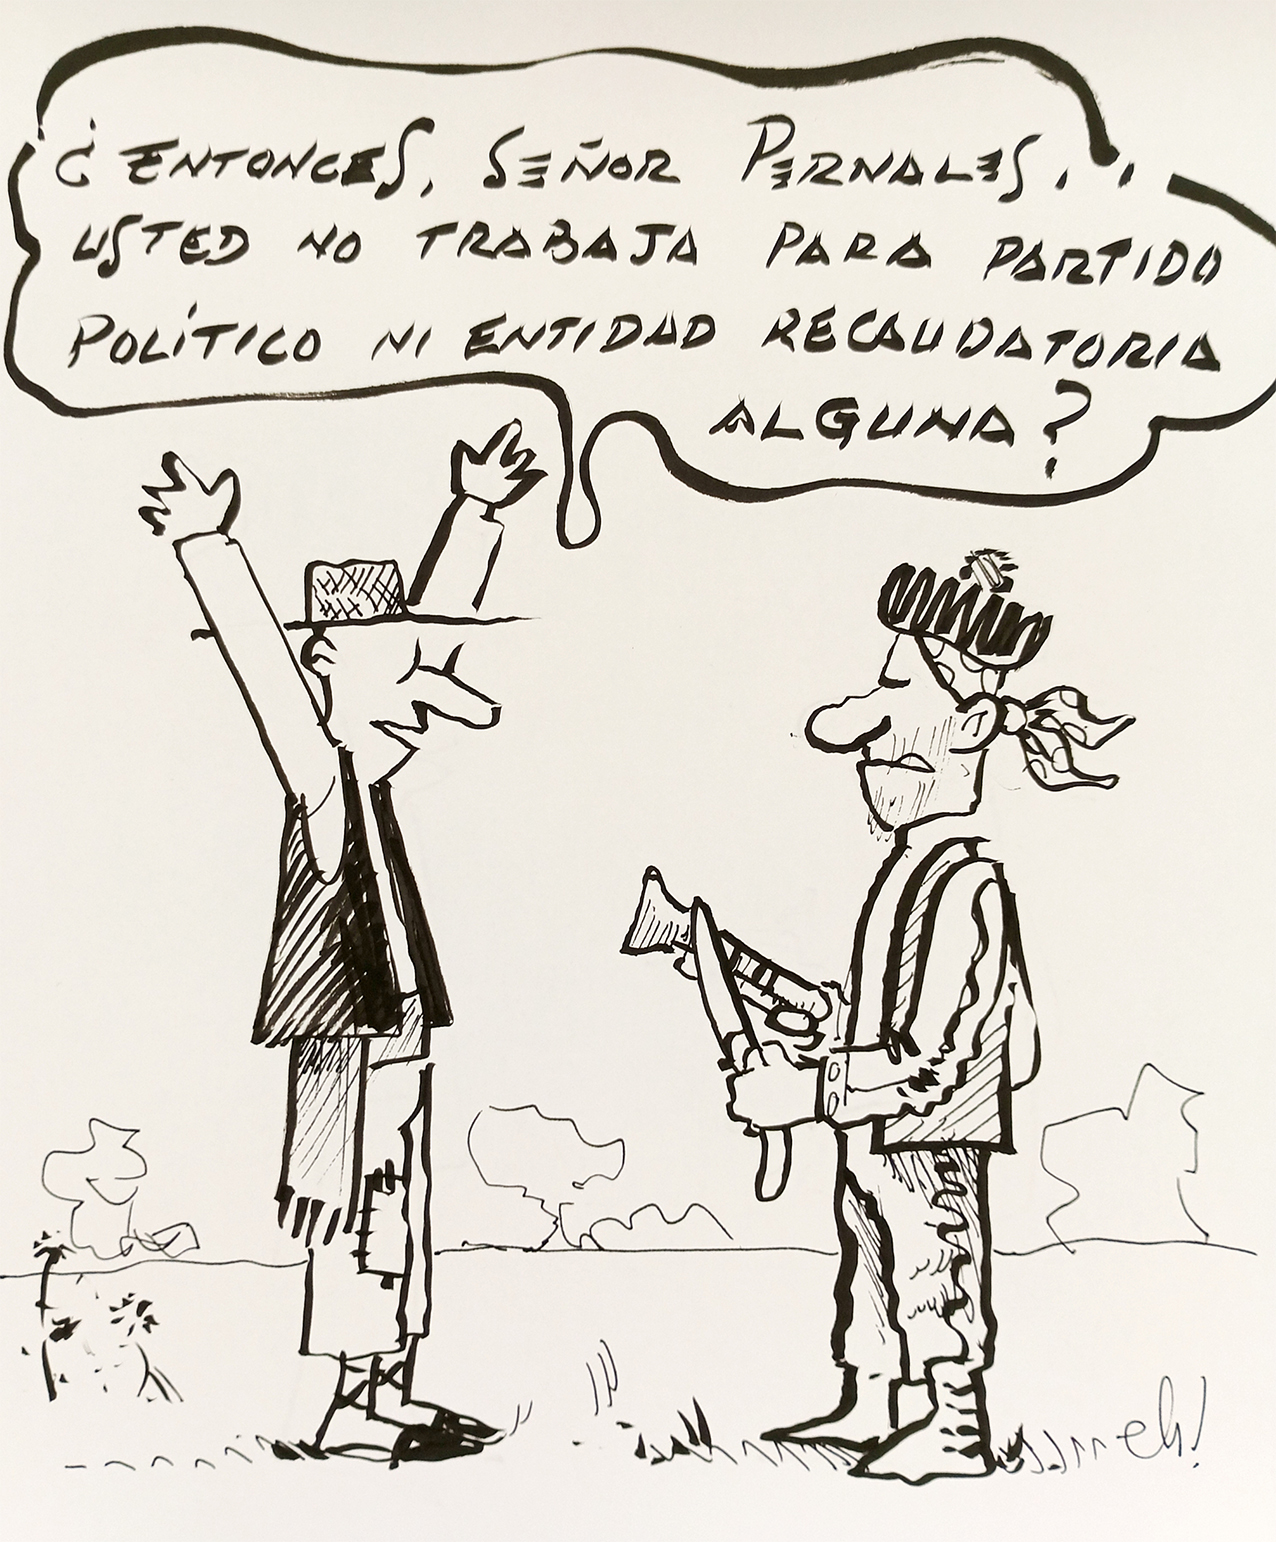 ¿ENTONCES, SEÑOR PERNALES,..
USTED NO TRABAJA PARA PARTIDO
POLÍTICO NI ENTIDAD RECAUDATORIA
ALGUNA?
eh!